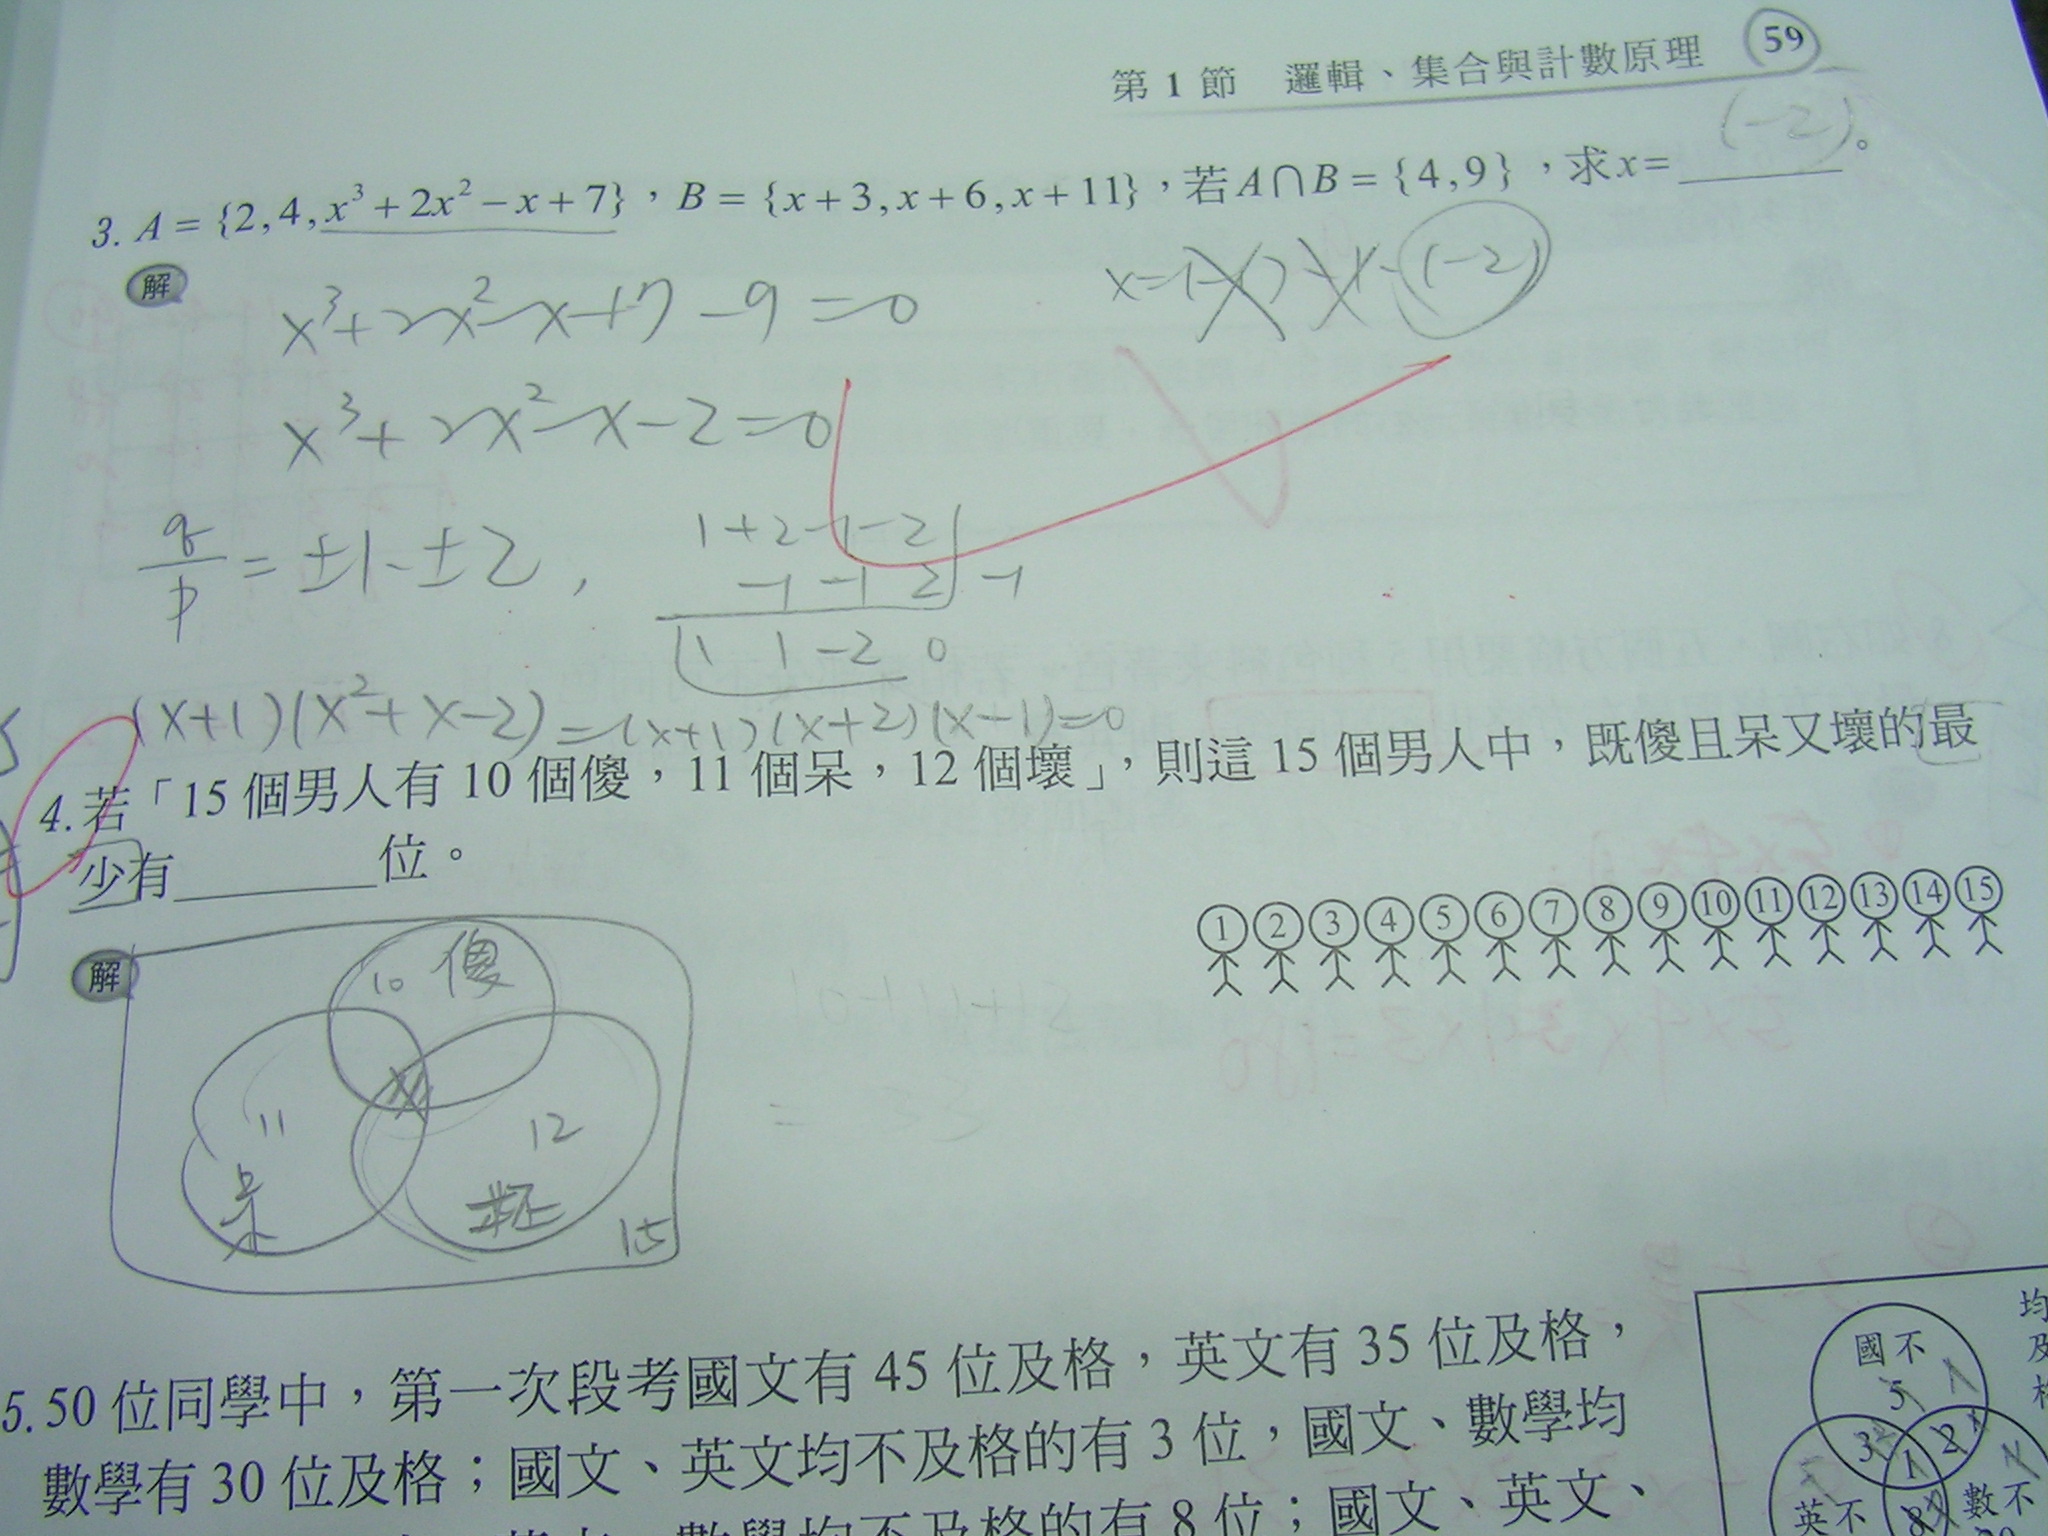 第 1 節 邏輯、集合與計數原理 59
(-2)
3. A = {2, 4, x³ + 2x² − x + 7}，B = {x + 3, x + 6, x + 11}，若 A∩B = {4, 9}，求 x = ________。
解
x³+2x²-x+7-9=0
x³+2x²-x-2=0
(-2)
q/p = ±1, ±2,
1+2-1-2
-1 -1 2 -1
1 1 -2 0
(x+1)(x²+x-2)=(x+1)(x+2)(x-1)=0
4. 若「15 個男人有 10 個傻，11 個呆，12 個壞」，則這 15 個男人中，既傻且呆又壞的最
少有________位。
① ② ③ ④ ⑤ ⑥ ⑦ ⑧ ⑨ ⑩ ⑪ ⑫ ⑬ ⑭ ⑮
解
10 傻
11
呆
12
15
5. 50 位同學中，第一次段考國文有 45 位及格，英文有 35 位及格，
數學有 30 位及格；國文、英文均不及格的有 3 位，國文、數學均
數學均不及格的有 8 位；國文、英文、
均
及
格
國不
5
3
1
2
英不
8
數不